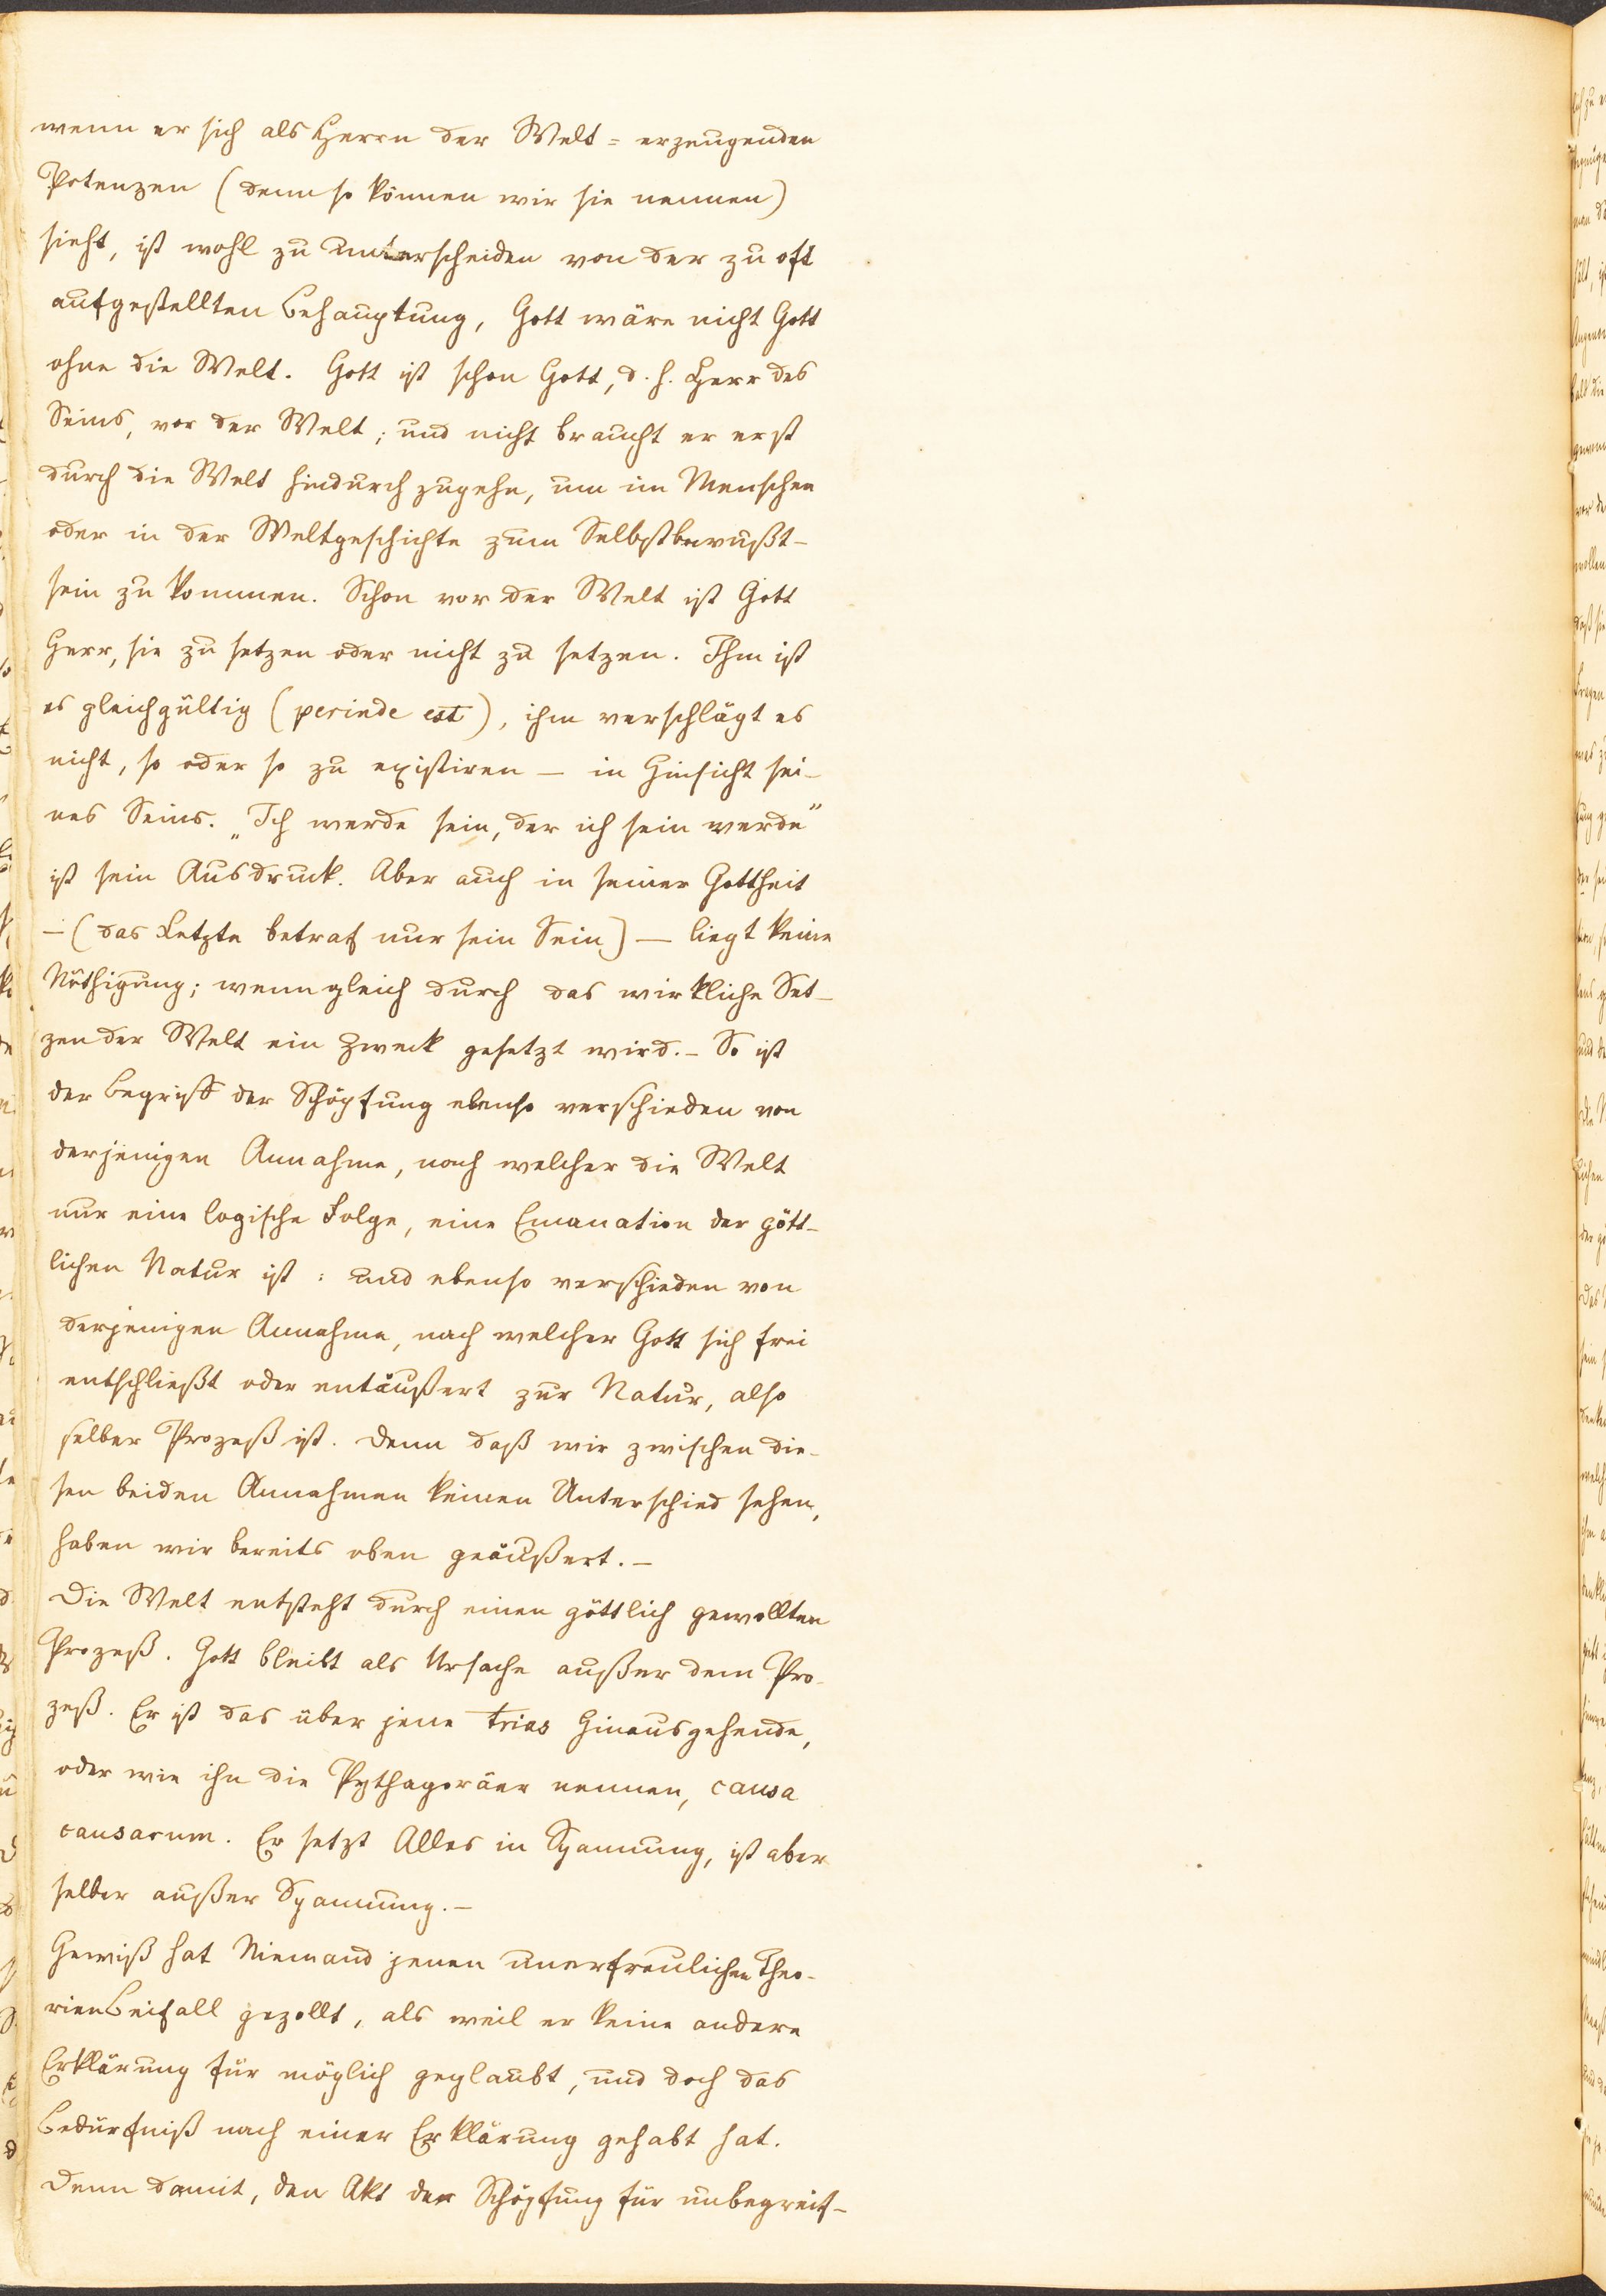 wenn er sich als Herrn der Welt=erzeugenden
Potenzen (denn so können wir sie nennen)
sieht, ist wohl zu unterscheiden von der zu oft
aufgestellten Behauptung, Gott wäre nicht Gott
ohne die Welt. Gott ist schon Gott, d. h. Herr des
Seins, vor der Welt; und nicht braucht er erst
durch die Welt hindurchzugehn, um im Menschen
oder in der Weltgeschichte zum Selbstbewußt-
sein zu kommen. Schon vor der Welt ist Gott
Herr, sie zu setzen oder nicht zu setzen. Ihm ist
es gleichgültig (perinde est), ihm verschlägt es
nicht, so oder so zu existiren – in Hinsicht sei-
nes Seins. „Ich werde sein, der ich sein werde“
ist sein Ausdruck. Aber auch in seiner Gottheit
– (das Letzte betraf nur sein Sein) – liegt keine
Nöthigung; wenngleich durch das wirkliche Set-
zen der Welt ein Zweck gesetzt wird. – So ist
der Begriff der Schöpfung ebenso verschieden von
derjenigen Annahme, nach welcher die Welt
nur eine logische Folge, eine Emanation der gött-
lichen Natur ist: und ebenso verschieden von
derjenigen Annahme, nach welcher Gott sich frei
entschließt oder entäußert zur Natur, also
selber Prozeß ist. Denn daß wir zwischen die-
sen beiden Annahmen keinen Unterschied sehen,
haben wir bereits oben geäußert. –
Die Welt entsteht durch einen göttlich gewollten
Prozeß. Gott bleibt als Ursache außer dem Pro-
zeß. Er ist das über jene trias Hinausgehende,
oder wie ihn die Pythagoräer nennen, causa
causarum. Er setzt Alles in Spannung, ist aber
selber außer Spannung. –
Gewiß hat Niemand jenen unerfreulichen Theo-
rien Beifall gezollt, als weil er keine andere
Erklärung für möglich geglaubt, und doch das
Bedürfniß nach einer Erklärung gehabt hat.
Denn damit, den Akt der Schöpfung für unbegreif-